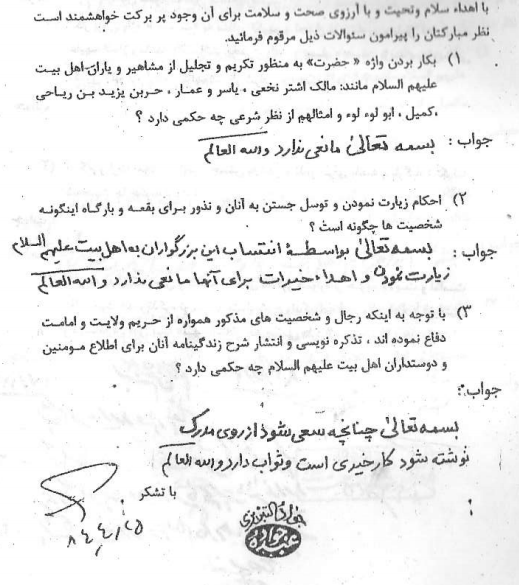 با اهداء سلام وتحیت و با آرزوی صحت و سلامت برای آن وجود پر برکت خواهشمند است
نظر مبارکتان را پیرامون سئوالات ذیل مرقوم فرمائید.
۱) بکار بردن واژه « حضرت» به منظور تکریم و تجلیل از مشاهیر و یاران اهل بیت
علیهم السلام مانند: مالک اشتر نخعی ، یاسر و عمار ، حربن یزید بن ریاحی
،کمیل ، ابو لوء لوء و امثالهم از نظر شرعی چه حکمی دارد ؟
جواب : بسمه تعالیٰ مانعی ندارد والله العالم
۲) احکام زیارت نمودن و توسل جستن به آنان و نذور برای بقعه و بارگاه اینگونه
شخصیت ها چگونه است ؟
جواب : بسمه تعالیٰ بواسطهٔ انتساب این بزرگواران به اهل بیت علیهم السلام
زیارت نمودن و اهداء خیرات برای آنها مانعی ندارد والله العالم
۳) با توجه به اینکه رجال و شخصیت های مذکور همواره از حریم ولایت و امامت
دفاع نموده اند ، تذکره نویسی و انتشار شرح زندگینامه آنان برای اطلاع مومنین
و دوستداران اهل بیت علیهم السلام چه حکمی دارد ؟
جواب :
بسمه تعالیٰ چنانچه سعی شود از روی مدرک
نوشته شود کار خیری است و ثواب دارد والله العالم
با تشکر
جواد التبریزی